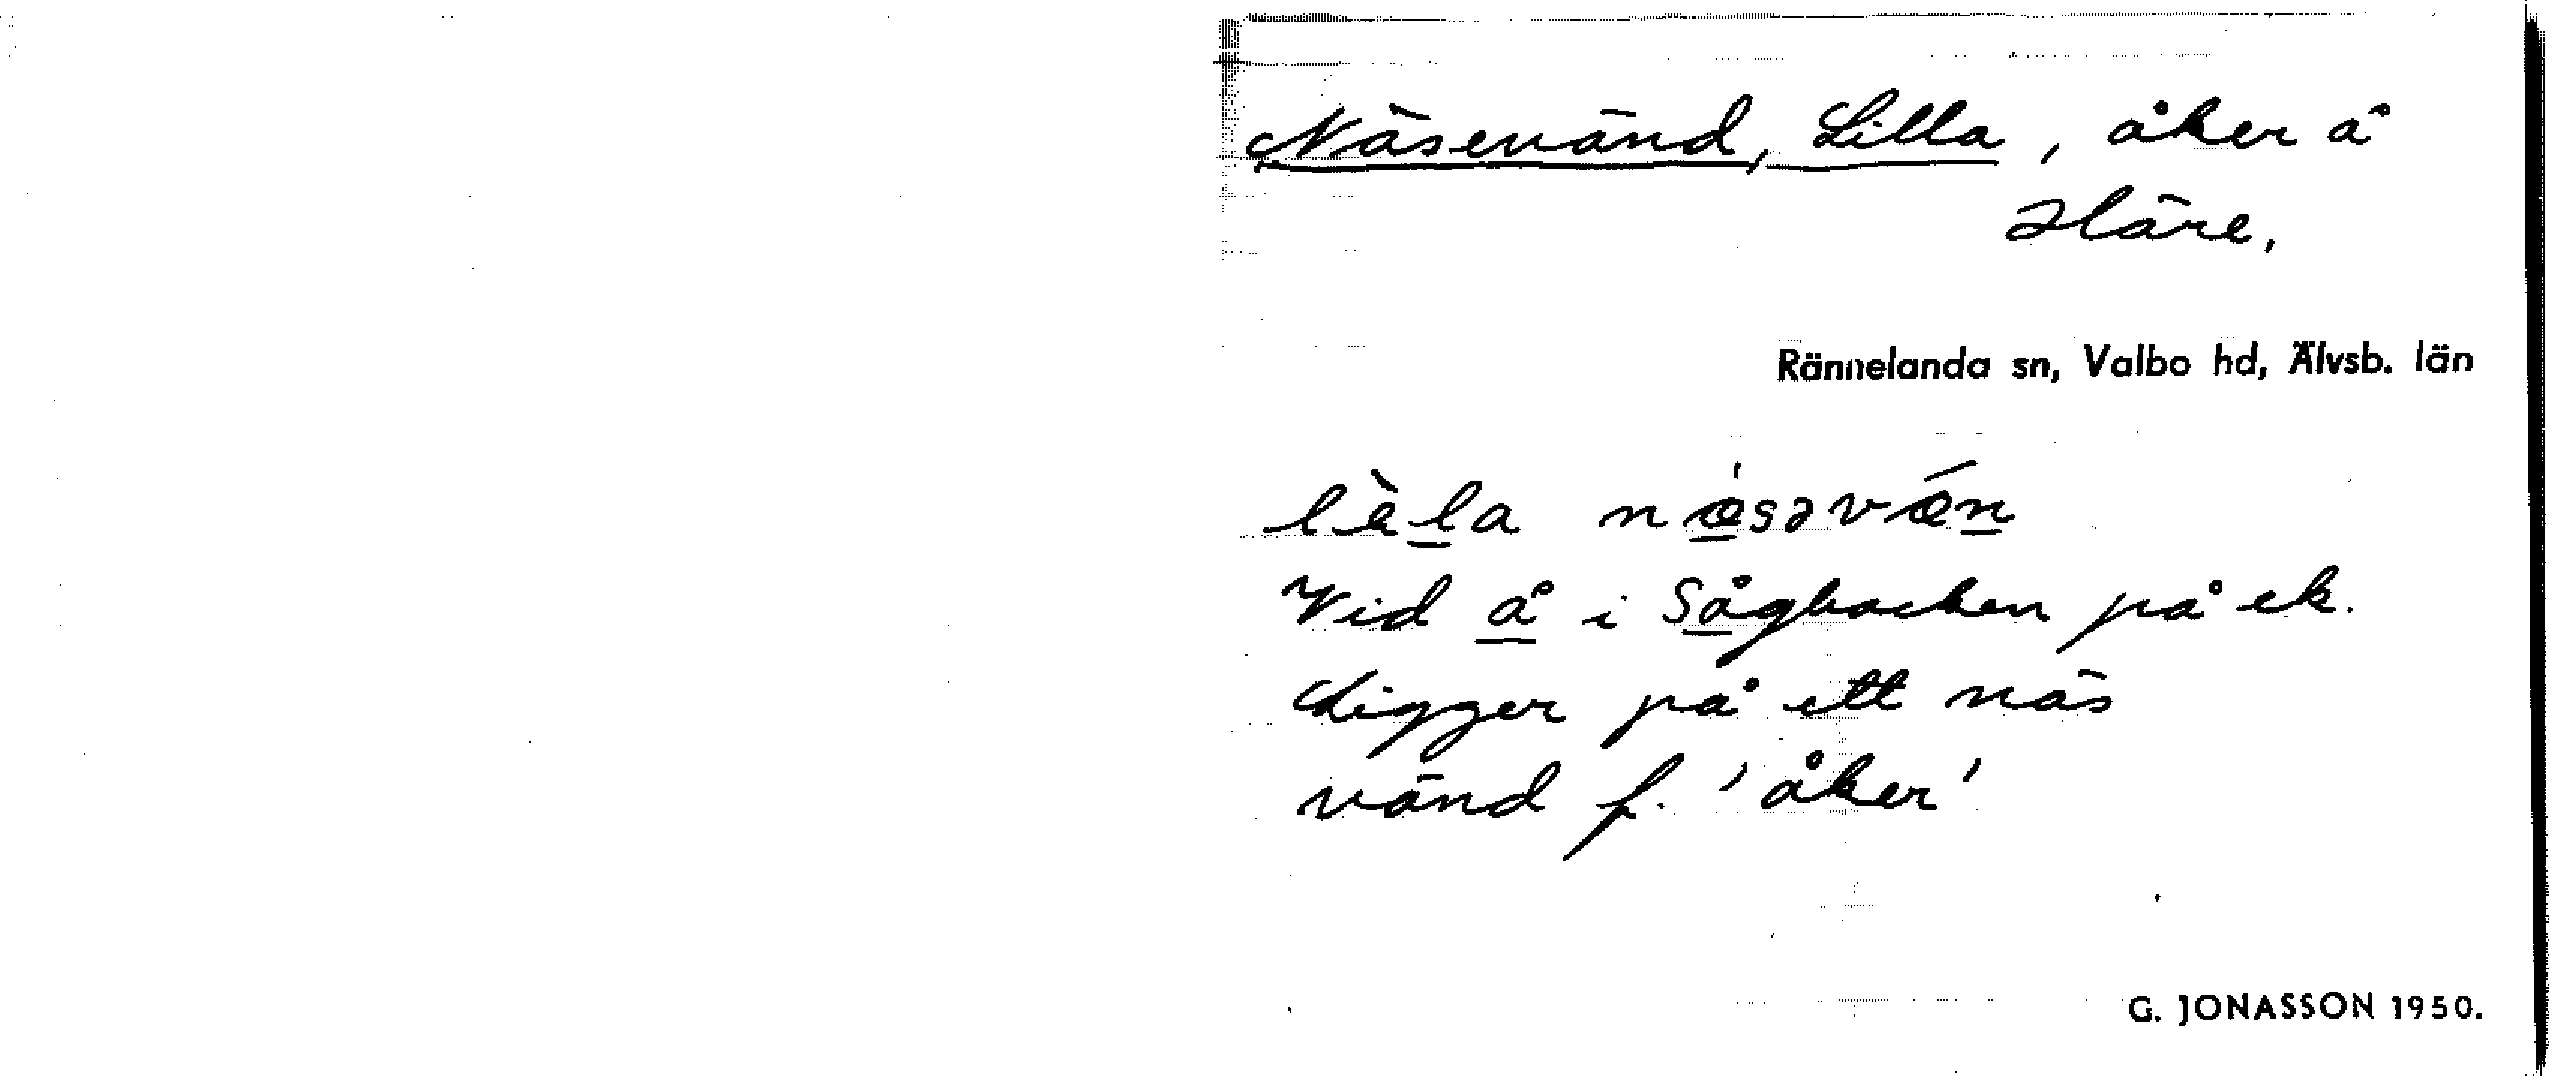 Näsevänd, Lilla, åker å
Häre.
Rännelanda sn, Valbo hd, Älvsb. län
lèla nǽsəvǽn
Vid å i Sågbacken på ek.
Ligger på ett näs
vänd f. 'åker'
G. JONASSON 1950.